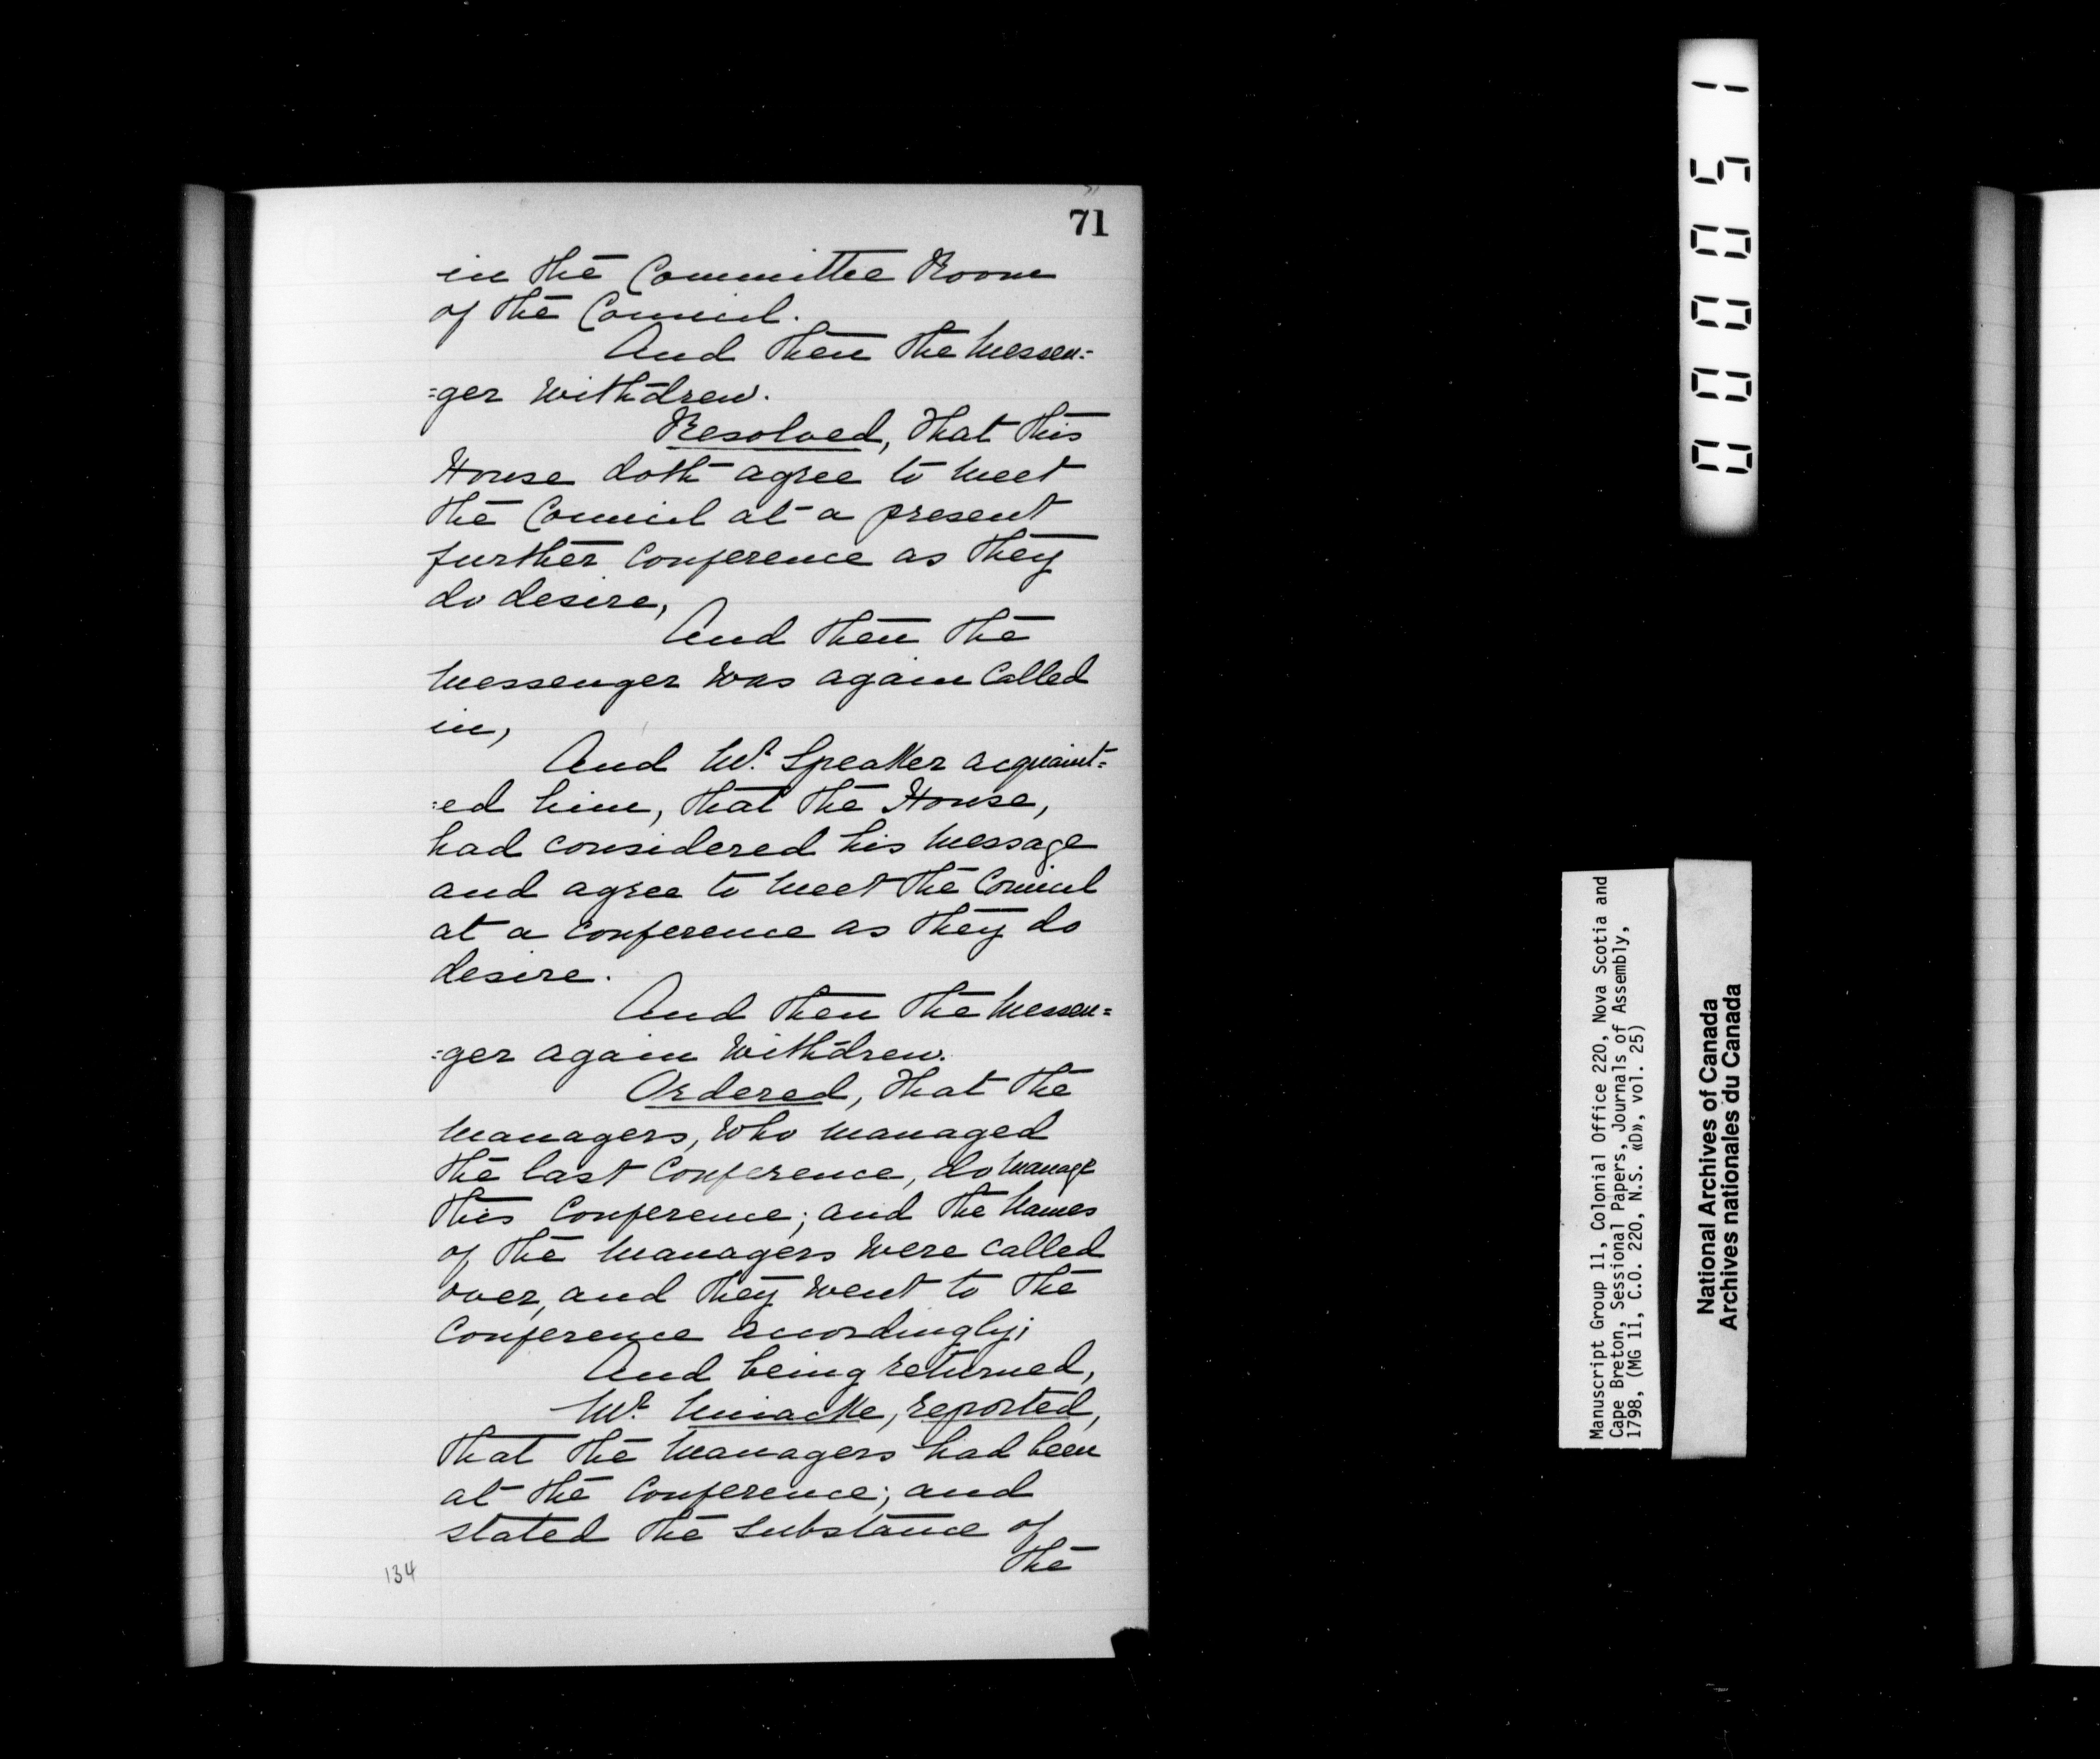 71
in the Committee Room
of the Council.
And then the Messen=
=ger withdrew.
Resolved, that this
House doth agree to meet
the Council at a present
further Conference as they
do desire,
And then the
Messenger was again Called
in,
And Mr. Speaker acquaint=
=ed him, that the House,
had considered his Message
and agree to meet the Council
at a conference as they do
desire.
And then the Messen=
=ger again Withdrew.
Ordered, that the
Managers, who managed
the last Conference, do manage
this Conference; and the Names
of the Managers were called
over, and they went to the
Conference accordingly;
And being returned,
Mr. Uniacke, reported,
that the Managers had been
at the Conference; and
stated the Substance of
the
134
000051
Manuscript Group 11, Colonial Office 220, Nova Scotia and
Cape Breton, Sessional Papers, Journals of Assembly,
1798, (MG 11, C.O. 220, N.S. «D», vol. 25)
National Archives of Canada
Archives nationales du Canada